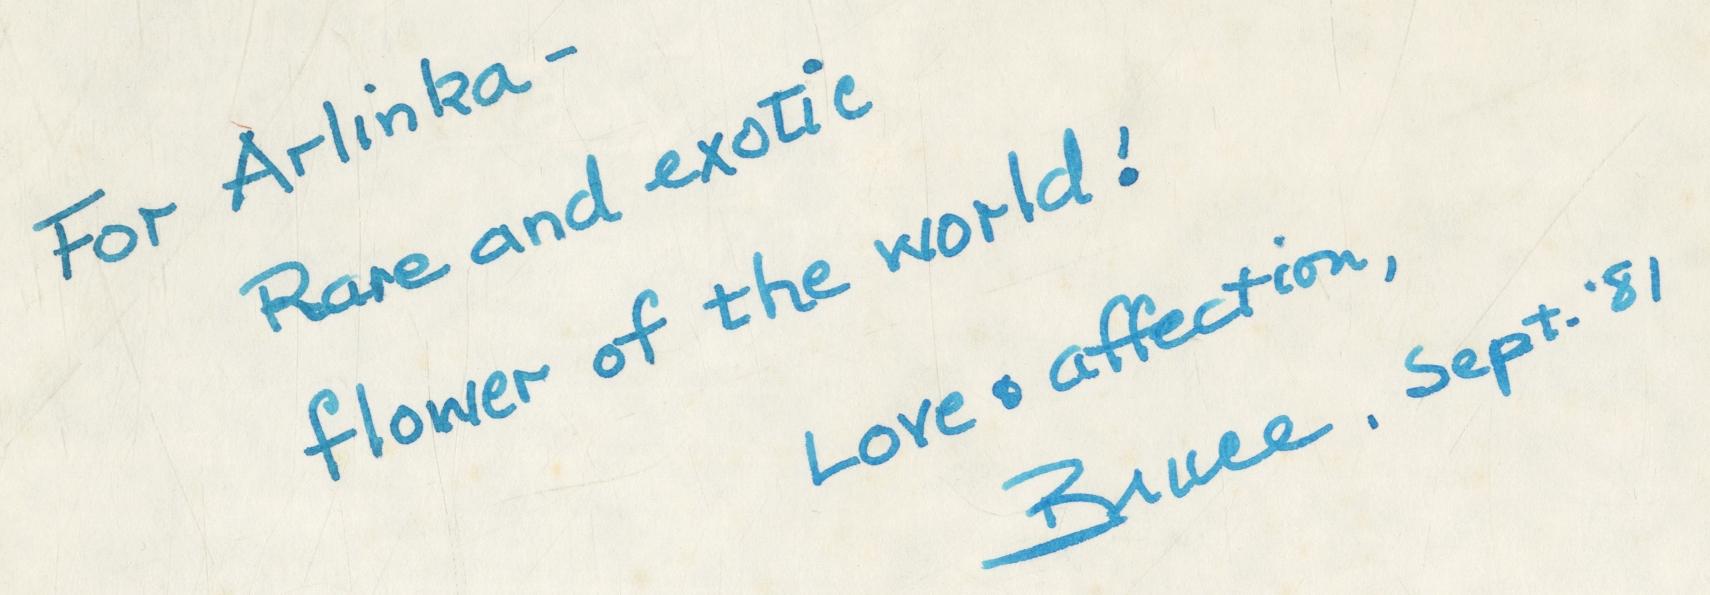 For Arlinka -
Rare and exotic
flower of the world!
Love & affection,
Bruce, Sept. '81